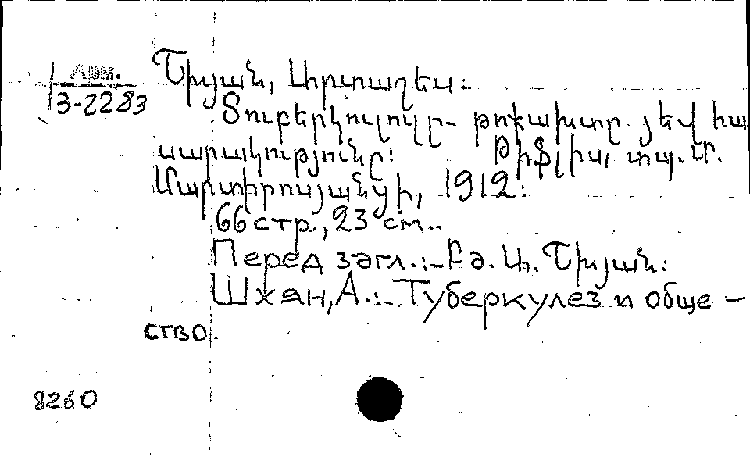 Арм.
3-2283
Շխյան, Արտաշես:
Տուբերկուլոզը - թոքախտը յեվ հա
սարակությունը: Թիֆլիս, տպ. Մ.
Մարտիրոսյանցի, 1912:
66 стр., 23 см..
Перед загл.:- Բժ. Ար. Շխյան:
Шхян, А.:- Туберкулез и обще-
ство.
8260